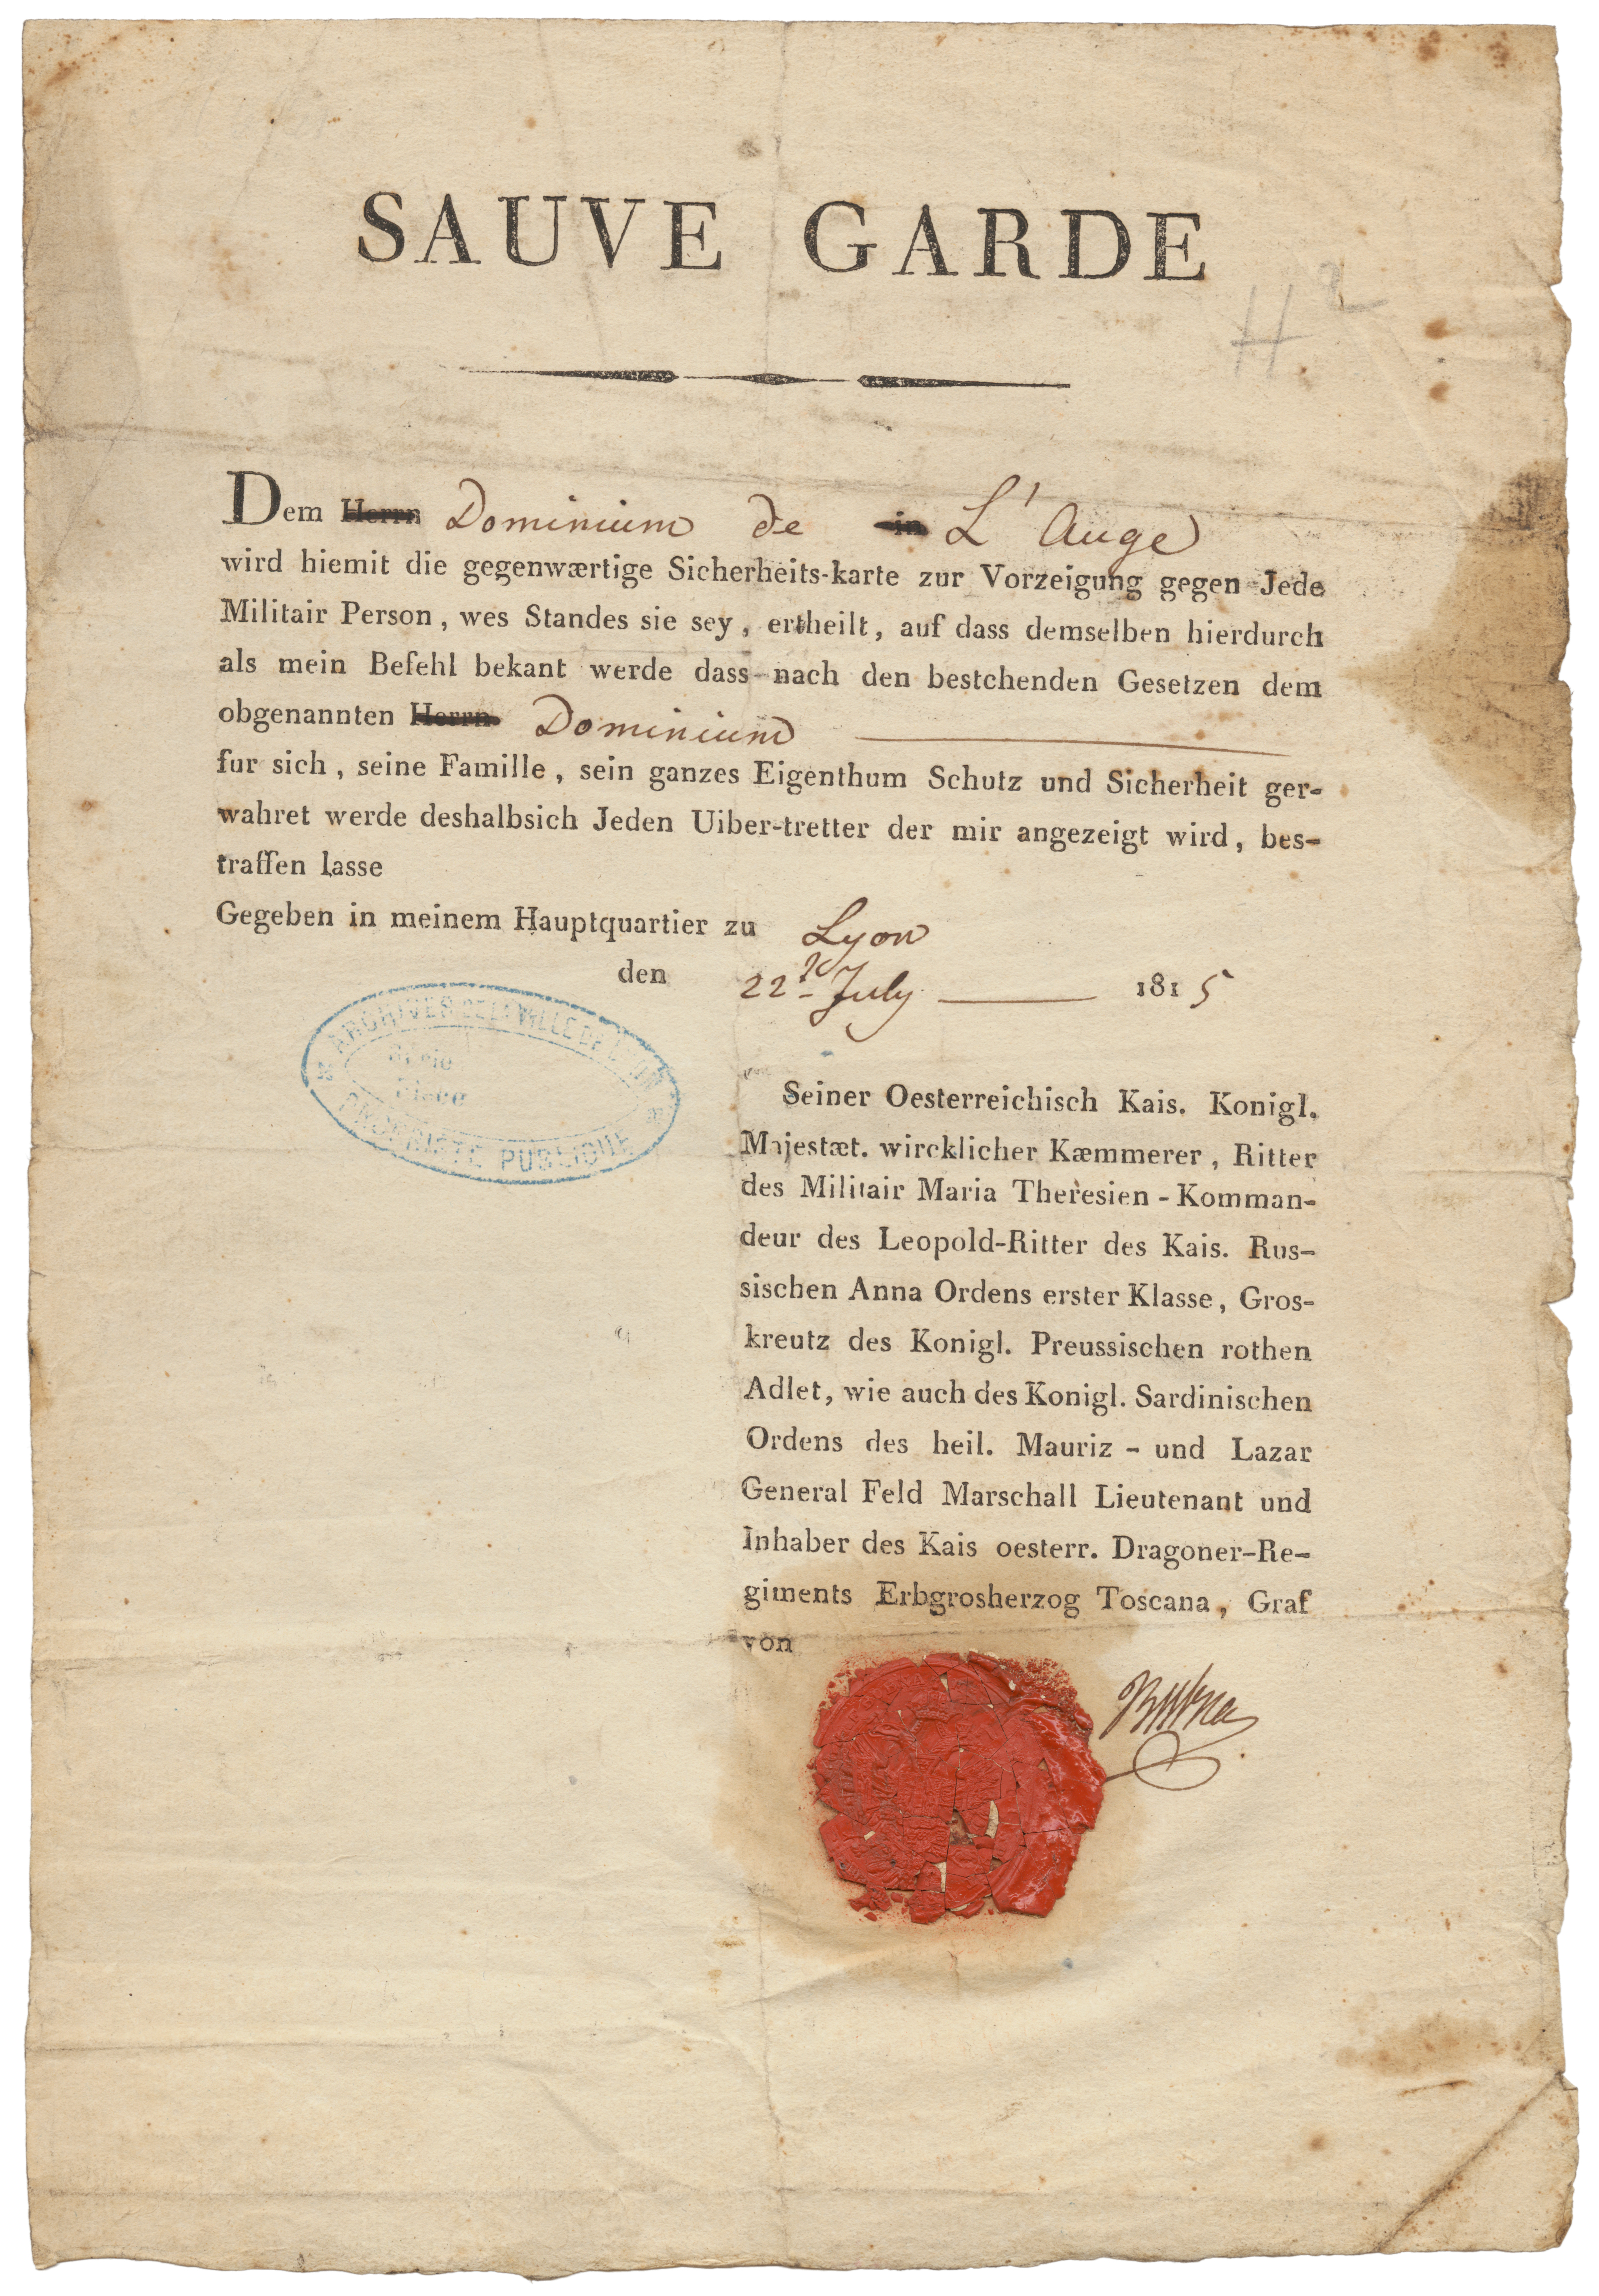 SAUVE GARDE
H 2
Dem Herrn Dominium de in L' Auge
wird hiemit die gegenwærtige Sicherheits-karte zur Vorzeigung gegen Jede
Militair Person, wes Standes sie sey, ertheilt, auf dass demselben hierdurch
als mein Befehl bekant werde dass nach den bestchenden Gesetzen dem
obgenannten Herrn Dominium
fur sich, seine Famille, sein ganzes Eigenthum Schutz und Sicherheit ger-
wahret werde deshalbsich Jeden Uiber-tretter der mir angezeigt wird, bes-
traffen lasse
Gegeben in meinem Hauptquartier zu Lyon
den 22 July 1815
ARCHIVES DE LA VILLE DE LYON
PROPRIÉTÉ PUBLIQUE
Seiner Oesterreichisch Kais. Konigl.
Majestæt. wircklicher Kæmmerer, Ritter
des Militair Maria Theresien - Komman-
deur des Leopold-Ritter des Kais. Rus-
sischen Anna Ordens erster Klasse, Gros-
kreutz des Konigl. Preussischen rothen
Adlet, wie auch des Konigl. Sardinischen
Ordens des heil. Mauriz - und Lazar
General Feld Marschall Lieutenant und
Inhaber des Kais oesterr. Dragoner-Re-
giments Erbgrosherzog Toscana, Graf
von